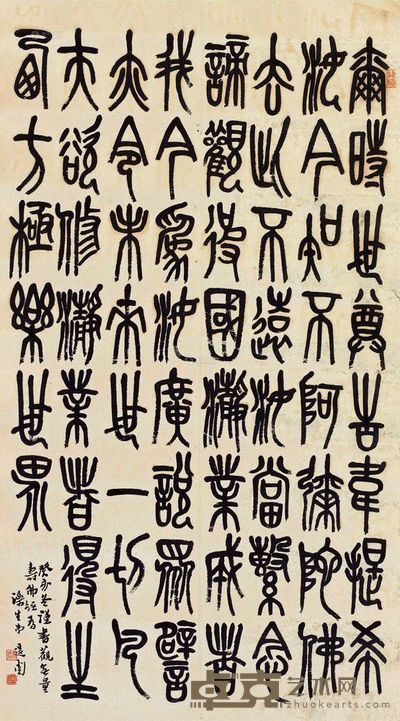 爾時世尊告韋提希
汝今知不阿彌陀佛
去此不遠汝當繫念
諦觀彼國瀞業成者
我今為汝廣說眾譬
亦令未來世一切凡
夫欲修瀞業者得生
西方極樂世界
謹書觀無量
壽佛經
卓克艺术网
zhuokearts.com